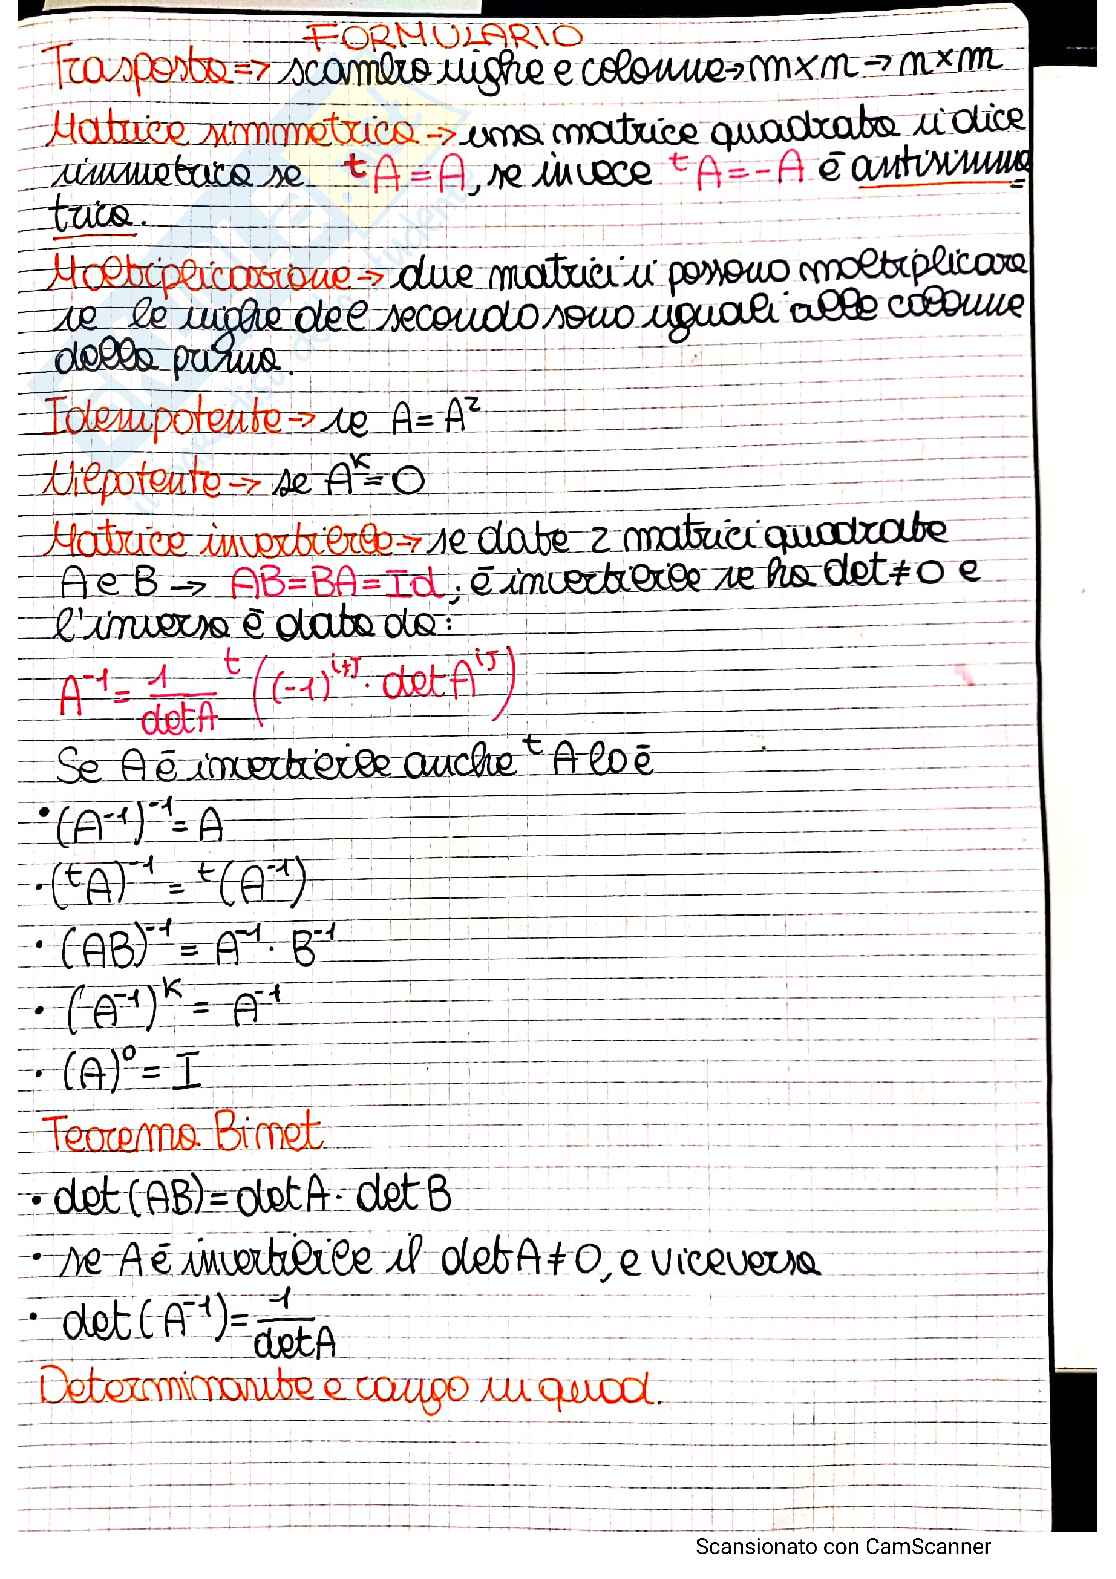 FORMULARIO
Trasposta => scambio righe e colonne → m×n → n×m
Matrice simmetrica → una matrice quadrata si dice
simmetrica se ᵗA = A, se invece ᵗA = -A è antisimme
trica.
Moltiplicazione → due matrici si possono moltiplicare
se le righe del secondo sono uguali alle colonne
della prima.
Idempotente → se A = A²
Nilpotente → se Aᴷ = 0
Matrice invertibile → se date 2 matrici quadrate
A e B → AB = BA = Id ; è invertibile se ha det ≠ 0 e
l'inversa è data da:
A⁻¹ = 1/detA ᵗ((-1)ⁱ⁺ᴶ · det Aⁱᴶ)
Se A è invertibile anche ᵗA lo è
• (A⁻¹)⁻¹ = A
• (ᵗA)⁻¹ = ᵗ(A⁻¹)
• (AB)⁻¹ = A⁻¹ · B⁻¹
• (A⁻¹)ᴷ = A⁻¹
• (A)⁰ = I
Teorema Binet
• det(AB) = detA · detB
• se A è invertibile il detA ≠ 0, e viceversa
• det(A⁻¹) = 1/detA
Determinante e rango in quad.
Scansionato con CamScanner